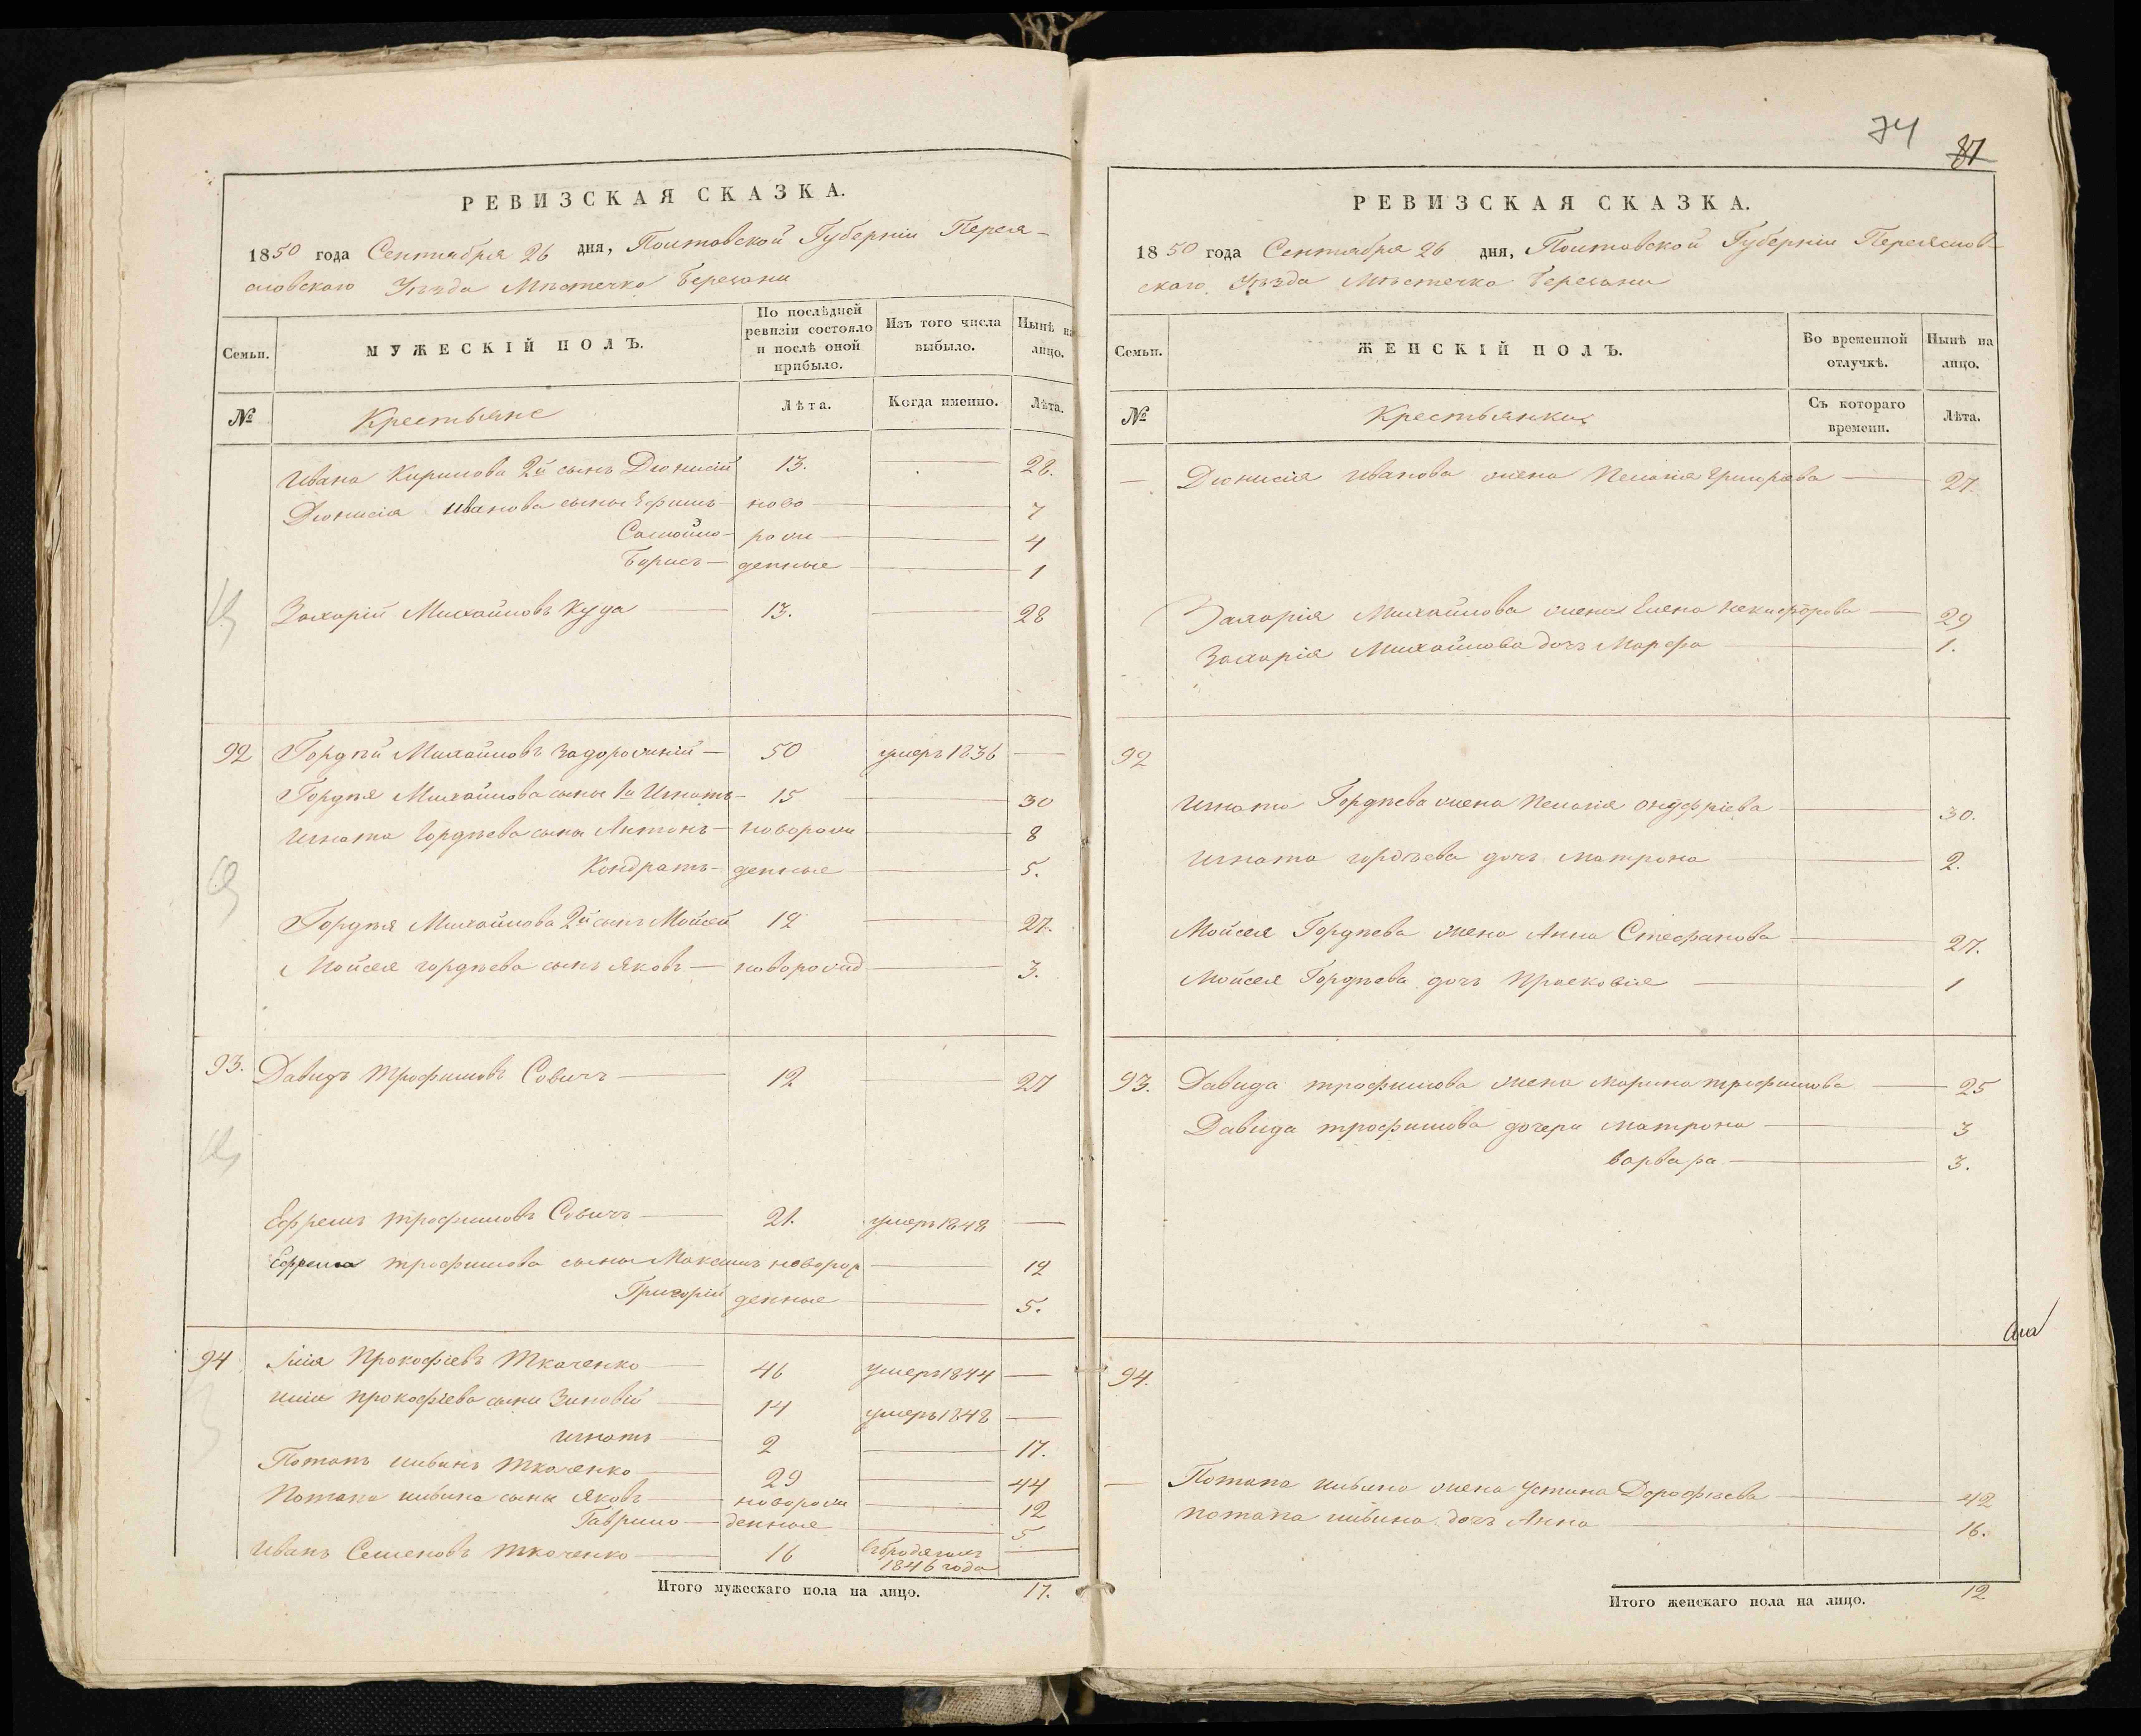 РЕВИЗСКАЯ СКАЗКА.
1850 года Сентября 26 дня, Полтавской Губерніи Перея-
словского Уѣзда Мѣстечка Березани
Семьи.
МУЖЕСКІЙ ПОЛЪ.
По послѣдней ревизіи состояло и послѣ оной прибыло.
Изъ того числа выбыло.
Нынѣ на лицо.
№
Крестьяне
Лѣта.
Когда именно.
Лѣта.
Ивана Кирилова 2й сынъ Діонисій 13. 28.
Діонисія Иванова сыны Ефимъ ново 7
Самойло рож 4
Борисъ денные 1
Захарій Михайловъ Куца 13. 28
92 Гордѣй Михайловъ Задорожній 50 умеръ 1836
Гордѣя Михайлова сыны 1й Игнатъ 15 30
Игната Гордѣева сыны Антонъ новорож 8
Кондратъ денные 5.
Гордѣя Михайлова 2й сынъ Мойсей 12 27.
Мойсея Гордѣева сынъ Яковъ новорожд 3.
93. Давидъ Трофимовъ Совичъ 12 27
Ефремъ Трофимовъ Совичъ 21. умеръ 1848
Ефрема Трофимова сыны Максимъ новорож 12
Григорій денные 5.
94 Илія Прокофіевъ Ткаченко 46 умеръ 1844
Иліи Прокофіева сыны Зиновій 14 умеръ 1848
Игнатъ 2 17.
Потапъ Ильинъ Ткаченко 29 44
Потапа Ильина сыны Яковъ новорож 12
Гаврило денные 5
Иванъ Семеновъ Ткаченко 16 въ бродягахъ
1846 года
Итого мужескаго пола на лицо. 17.
74
87
РЕВИЗСКАЯ СКАЗКА.
1850 года Сентября 26 дня, Полтавской Губерніи Переяслов-
скаго Уѣзда Мѣстечка Березани
Семьи.
ЖЕНСКІЙ ПОЛЪ.
Во временной отлучкѣ.
Нынѣ на лицо.
№
Крестьянки
Съ котораго времени.
Лѣта.
Діонисія Иванова жена Пелагія 27.
Захарія Михайлова жена Елена Никифорова 29
Захарія Михайлова дочь Марфа 1.
92
Игната Гордѣева жена Пелагія Онуфріева 30.
Игната Гордѣева дочь Матрона 2.
Мойсея Гордѣева жена Анна Стефанова 27.
Мойсея Гордѣева дочь Прасковія 1
93. Давида Трофимова жена Марина Трофимова 25
Давида Трофимова дочери Матрона 3
Варвара 3.
94.
Потапа Ильина жена Устина Дорофіева 42
Потапа Ильина дочь Анна 16.
Итого женскаго пола на лицо. 12